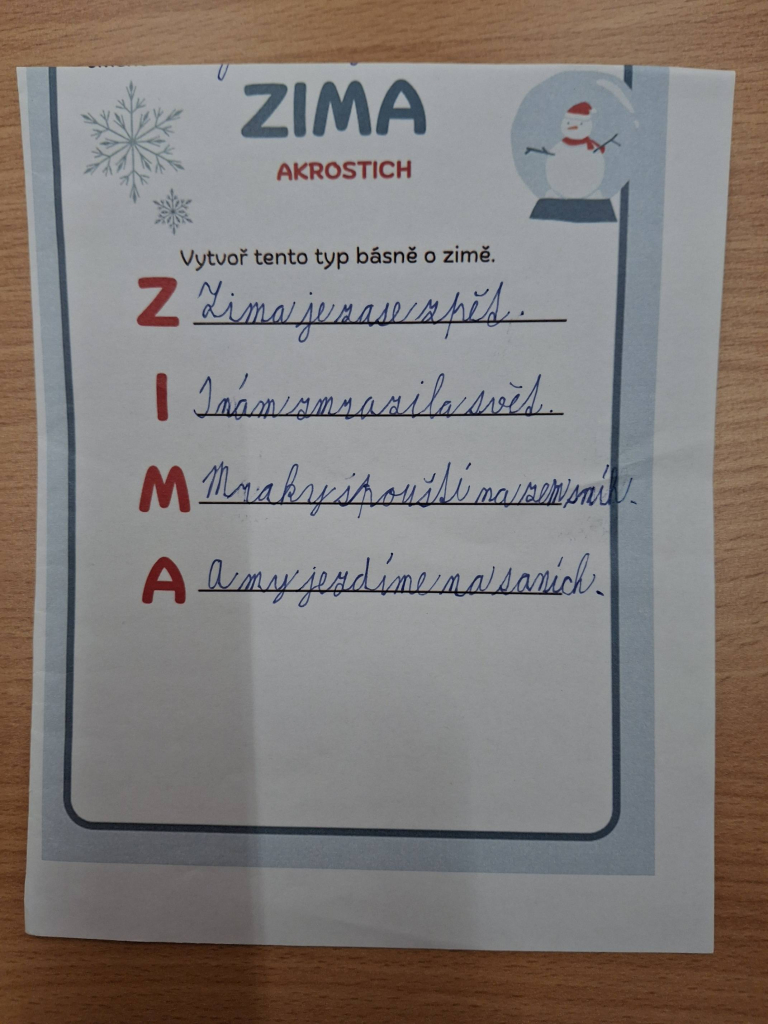 ZIMA
AKROSTICH
Vytvoř tento typ básně o zimě.
Z Zima je zase zpět.
I I nám zmrazila svět.
M Mraky spouští na zem sníh.
A A my jezdíme na saních.